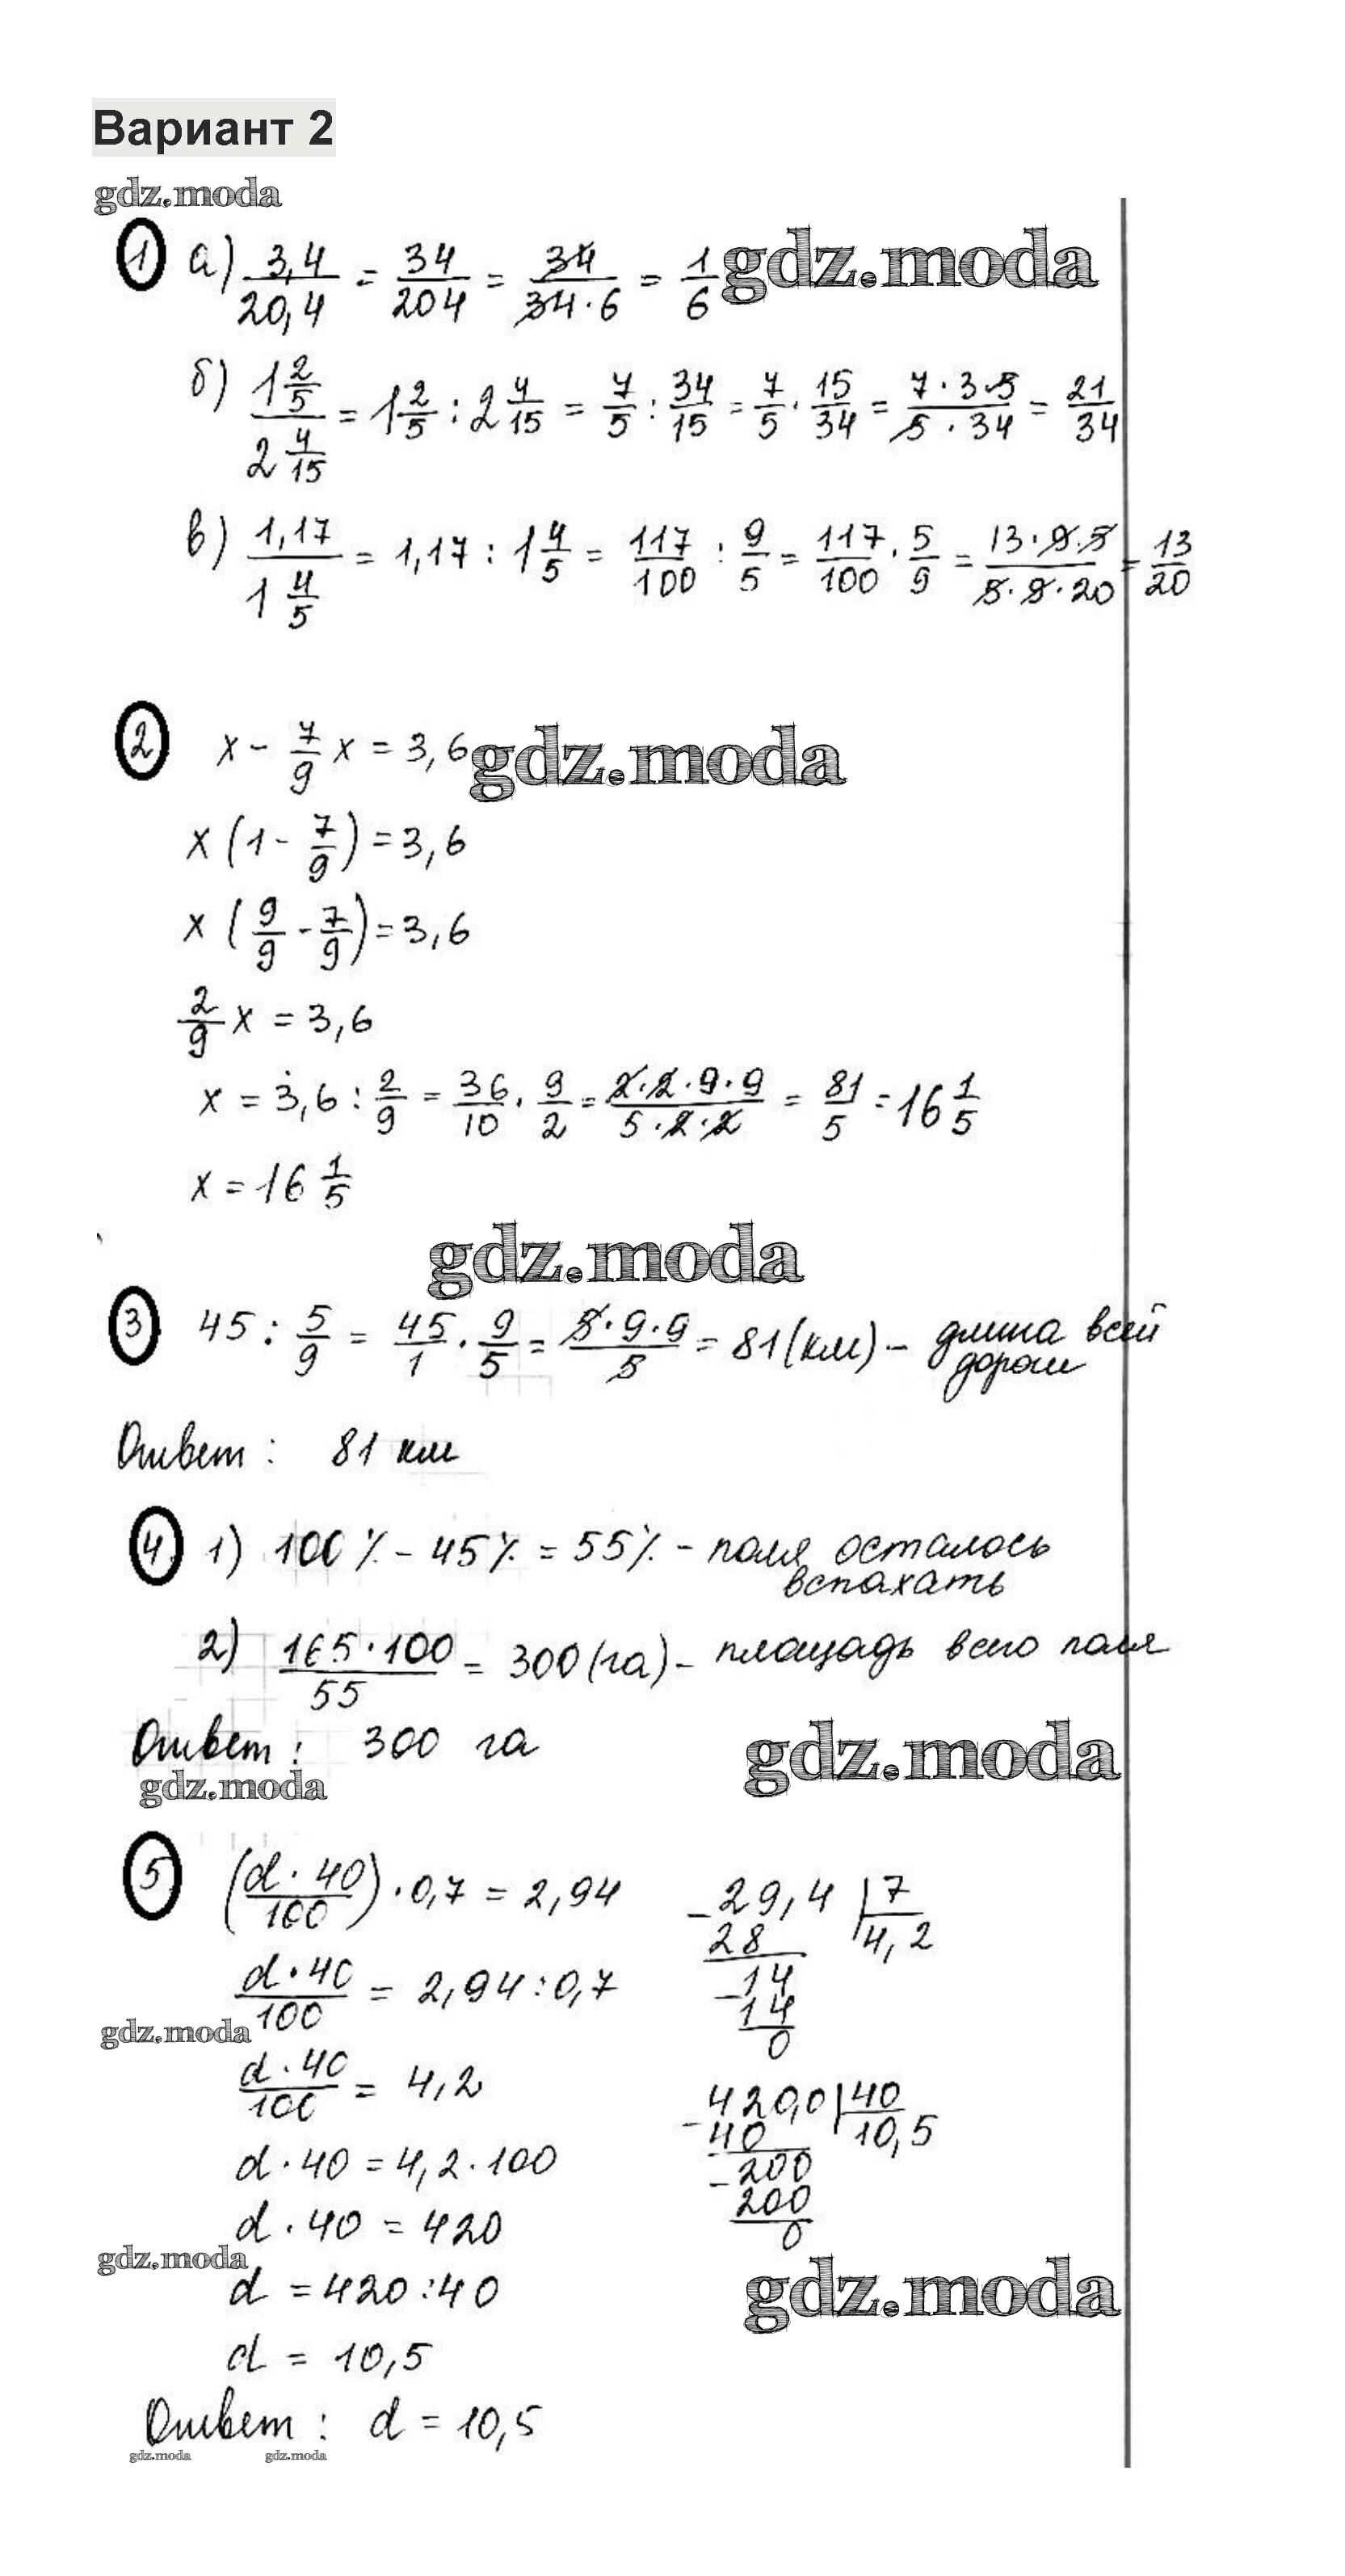 Вариант 2
gdz.moda
1 а) 3,4/20,4 = 34/204 = 34/34·6 = 1/6 gdz.moda
б) 1 2/5 / 2 4/15 = 1 2/5 : 2 4/15 = 7/5 : 34/15 = 7/5 · 15/34 = 7·3·5/5·34 = 21/34
в) 1,17 / 1 4/5 = 1,17 : 1 4/5 = 117/100 : 9/5 = 117/100 · 5/9 = 13·9·5/5·9·20 = 13/20
2 x - 7/9 x = 3,6 gdz.moda
x (1 - 7/9) = 3,6
x (9/9 - 7/9) = 3,6
2/9 x = 3,6
x = 3,6 : 2/9 = 36/10 · 9/2 = 2·2·9·9/5·2·2 = 81/5 = 16 1/5
x = 16 1/5
gdz.moda
3 45 : 5/9 = 45/1 · 9/5 = 5·9·9/5 = 81 (км) - длина всей
дороги
Ответ: 81 км
4 1) 100% - 45% = 55% - поля осталось
вспахать
2) 165·100/55 = 300 (га) - площадь всего поля
Ответ: 300 га
gdz.moda
gdz.moda
5 (d·40/100) · 0,7 = 2,94
d·40/100 = 2,94 : 0,7
gdz.moda
d·40/100 = 4,2
d·40 = 4,2·100
d·40 = 420
gdz.moda
d = 420 : 40
d = 10,5
-29,4 | 7
28 4,2
-14
14
0
-420,0 | 40
40 10,5
-200
200
0
gdz.moda
Ответ: d = 10,5
gdz.moda gdz.moda